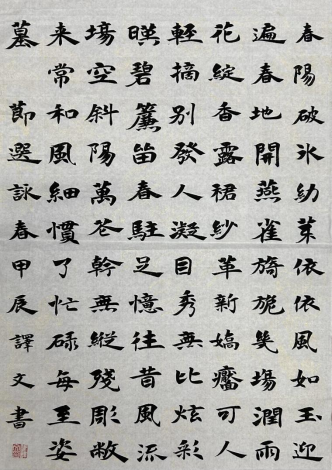 春陽破氷幼葉依依風如玉迎
遍春地開燕雀旖旎幾場潤雨
花綻香露裙紗革新嬌靨可人
輕摘别發人凝目秀無比炫彩
暎碧簾笛春駐足憶往昔風流
塲空斜陽萬苍幹無縱殘彫敝
来常和風細慣了忙碌每至姿
墓 節選詠春甲辰譯文書